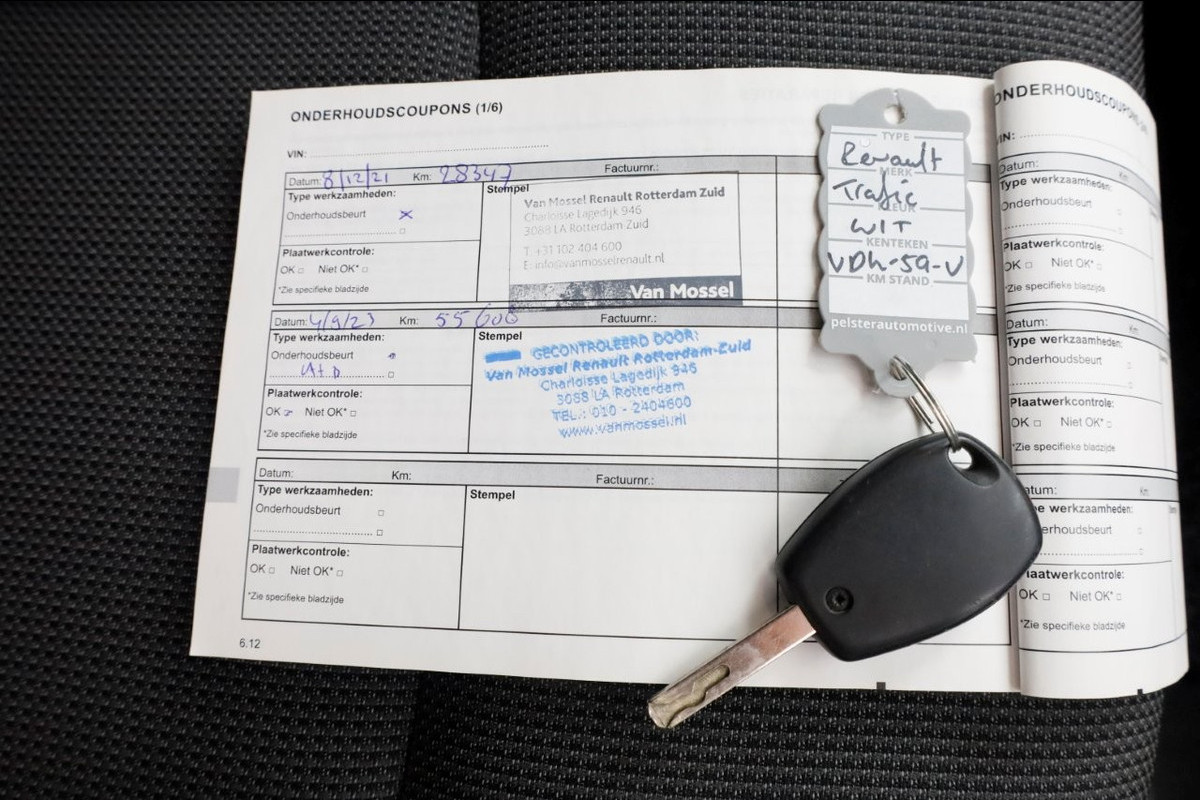 ONDERHOUDSCOUPONS (1/6)
VIN:
Datum: 8/12/21 Km: 28347 Factuurnr.:
Type werkzaamheden:
Onderhoudsbeurt
Plaatwerkcontrole:
OK Niet OK*
*Zie specifieke bladzijde
Stempel
Van Mossel Renault Rotterdam Zuid
Charloisse Lagedijk 946
3088 LA Rotterdam-Zuid
T +31 102 404 600
E: info@vanmosselrenault.nl
Van Mossel
Datum: 4/9/23 Km: 55 600 Factuurnr.:
Type werkzaamheden:
Onderhoudsbeurt
Plaatwerkcontrole:
OK Niet OK*
*Zie specifieke bladzijde
Stempel
GECONTROLEERD DOOR:
Van Mossel Renault Rotterdam-Zuid
Charloisse Lagedijk 946
3088 LA Rotterdam
TEL.: 010 - 2404600
www.vanmossel.nl
Datum: Km: Factuurnr.:
Type werkzaamheden:
Onderhoudsbeurt
Plaatwerkcontrole:
OK Niet OK*
*Zie specifieke bladzijde
Stempel
6.12
TYPE
Renault
MERK
Trafic
KLEUR
WIT
KENTEKEN
VDH-59-V
KM STAND
pelsterautomotive.nl
ONDERHOUDSCOUPONS
VIN:
Datum: Km:
Type werkzaamheden:
Onderhoudsbeurt
Plaatwerkcontrole:
OK Niet OK*
*Zie specifieke bladzijde
Datum: Km:
Type werkzaamheden:
Onderhoudsbeurt
Plaatwerkcontrole:
OK Niet OK*
*Zie specifieke bladzijde
atum: Km:
pe werkzaamheden:
erhoudsbeurt
laatwerkcontrole:
OK Niet OK*
*Zie specifieke bladzijde